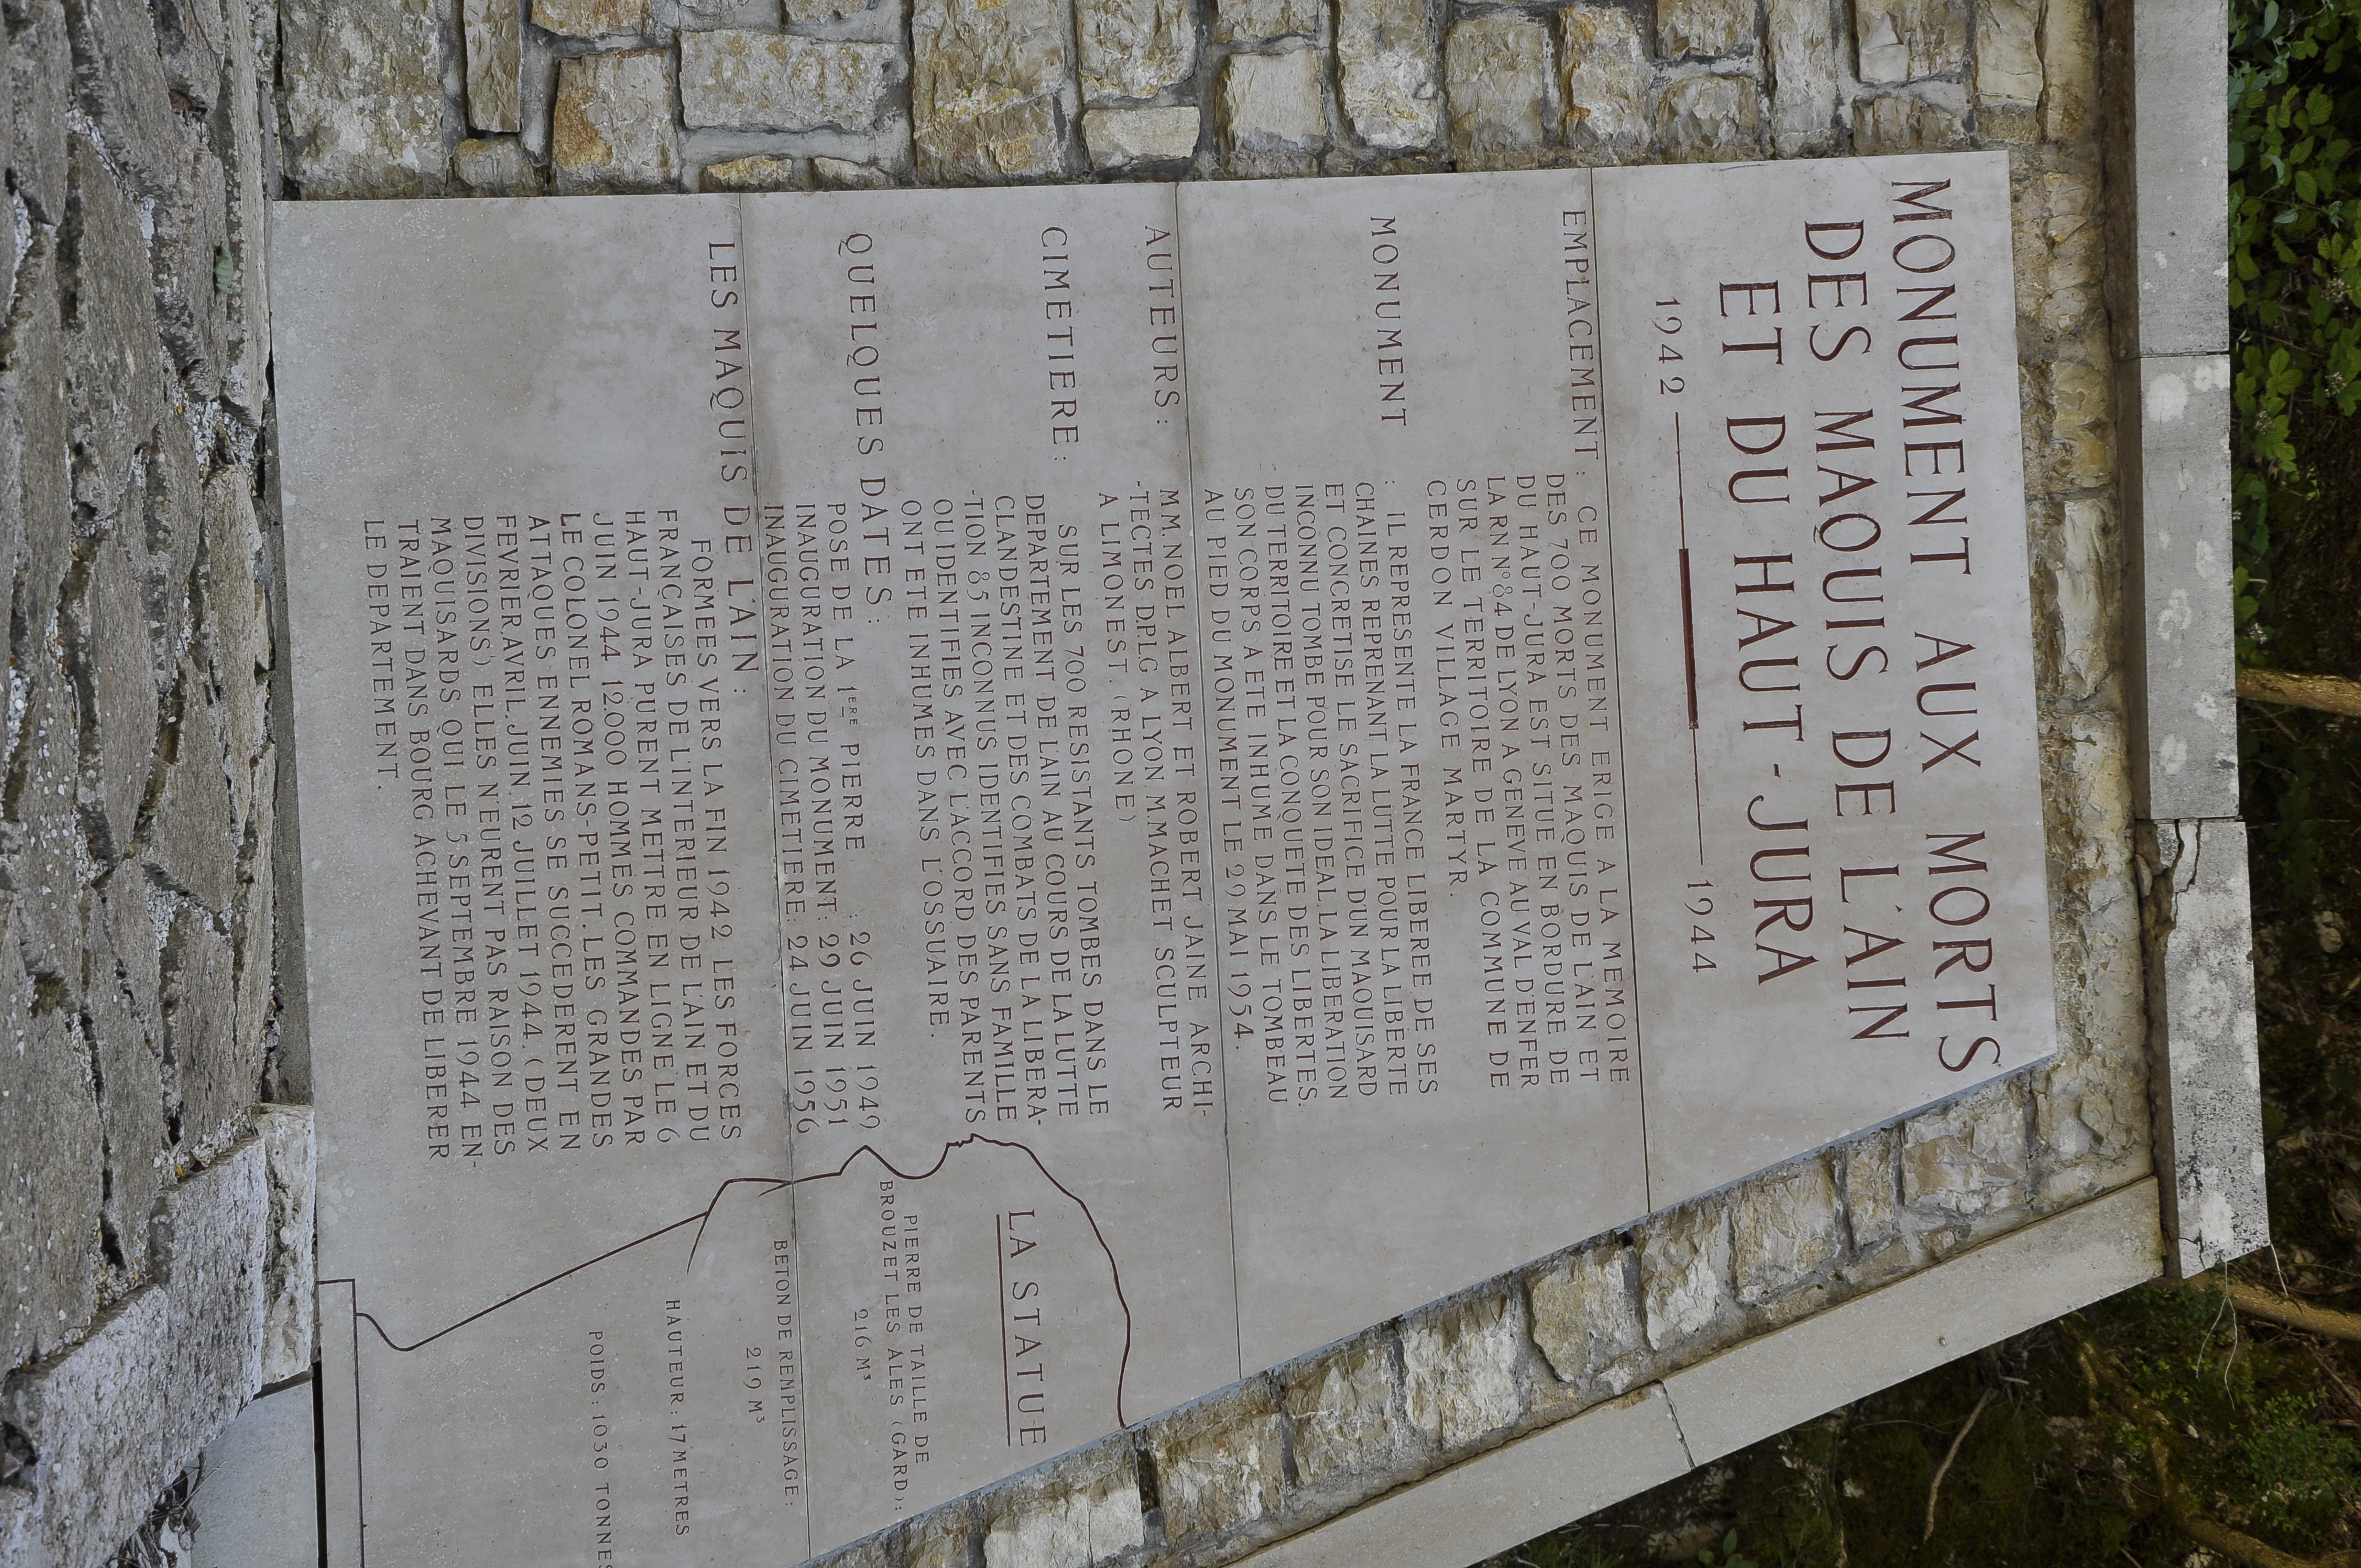 MONUMENT AUX MORTS
DES MAQUIS DE L'AIN
ET DU HAUT-JURA
1942 1944
EMPLACEMENT: CE MONUMENT ERIGE A LA MEMOIRE
DES 700 MORTS DES MAQUIS DE L'AIN ET
DU HAUT-JURA EST SITUE EN BORDURE DE
LA RN N°84 DE LYON A GENEVE AU VAL D'ENFER
SUR LE TERRITOIRE DE LA COMMUNE DE
CERDON VILLAGE MARTYR.
MONUMENT : IL REPRESENTE LA FRANCE LIBEREE DE SES
CHAINES REPRENANT LA LUTTE POUR LA LIBERTE
ET CONCRETISE LE SACRIFICE D'UN MAQUISARD
INCONNU TOMBE POUR SON IDEAL, LA LIBERATION
DU TERRITOIRE ET LA CONQUETE DES LIBERTES.
SON CORPS A ETE INHUME DANS LE TOMBEAU
AU PIED DU MONUMENT LE 29 MAI 1954.
AUTEURS: MM. NOEL ALBERT ET ROBERT JAINE ARCHI-
-TECTES DPLG A LYON. M. MACHET SCULPTEUR
A LIMONEST. (RHONE)
CIMETIERE: SUR LES 700 RESISTANTS TOMBES DANS LE
DEPARTEMENT DE L'AIN AU COURS DE LA LUTTE
CLANDESTINE ET DES COMBATS DE LA LIBERA-
-TION 85 INCONNUS IDENTIFIES SANS FAMILLE
OU IDENTIFIES AVEC L'ACCORD DES PARENTS
ONT ETE INHUMES DANS L'OSSUAIRE.
QUELQUES DATES:
POSE DE LA 1ERE PIERRE : 26 JUIN 1949
INAUGURATION DU MONUMENT: 29 JUIN 1951
INAUGURATION DU CIMETIERE: 24 JUIN 1956
LES MAQUIS DE L'AIN:
FORMEES VERS LA FIN 1942 LES FORCES
FRANÇAISES DE L'INTERIEUR DE L'AIN ET DU
HAUT-JURA PURENT METTRE EN LIGNE LE 6
JUIN 1944 12.000 HOMMES COMMANDES PAR
LE COLONEL ROMANS-PETIT. LES GRANDES
ATTAQUES ENNEMIES SE SUCCEDERENT EN
FEVRIER, AVRIL, JUIN, 12 JUILLET 1944. (DEUX
DIVISIONS). ELLES N'EURENT PAS RAISON DES
MAQUISARDS QUI LE 5 SEPTEMBRE 1944 EN-
TRAIENT DANS BOURG ACHEVANT DE LIBERER
LE DEPARTEMENT.
LA STATUE
PIERRE DE TAILLE DE
BROUZET LES ALES (GARD):
216 M³
BETON DE REMPLISSAGE:
219 M³
HAUTEUR: 17 METRES
POIDS: 1030 TONNES